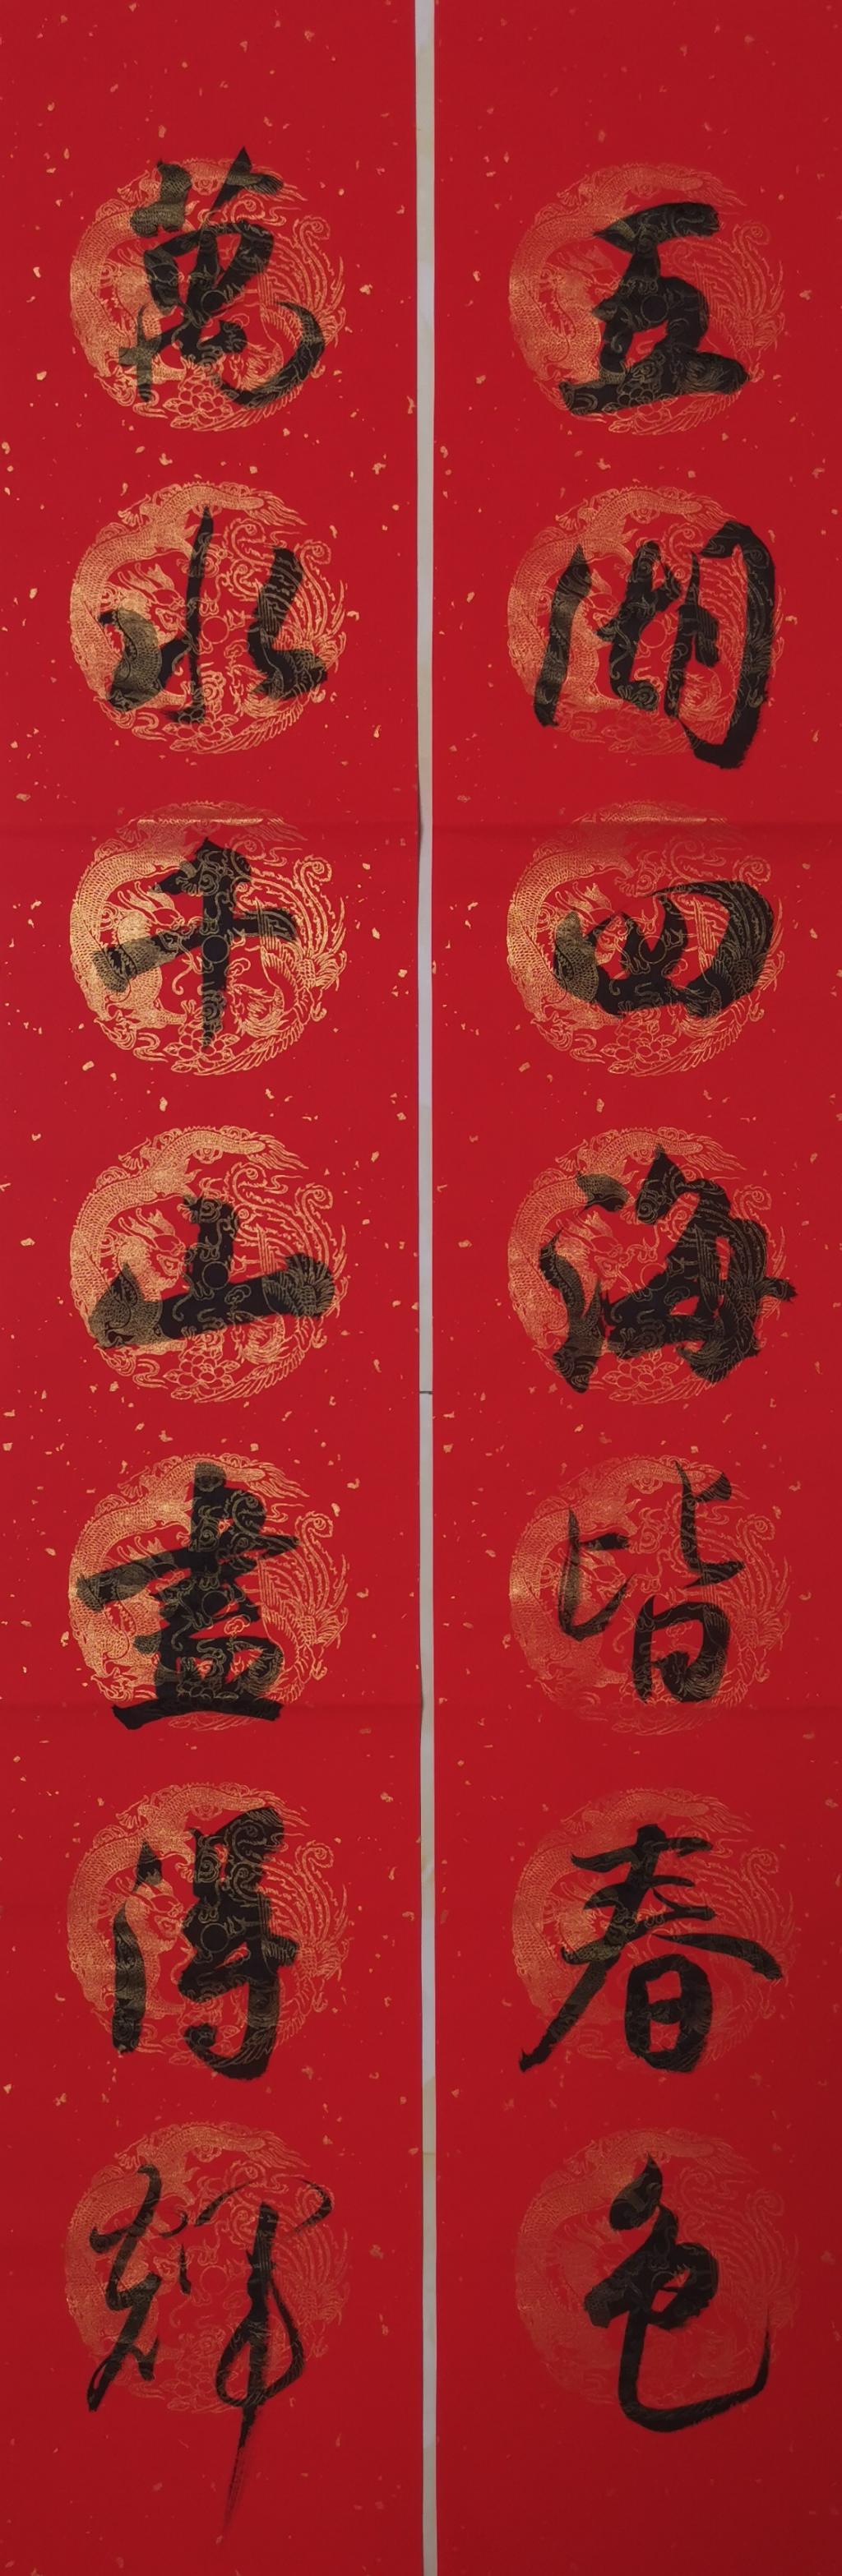 五湖四海皆春色
萬水千山盡得輝